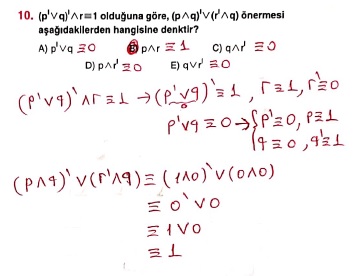 10. (p'∨q)'∧r≡1 olduğuna göre, (p∧q)'∨(r'∧q) önermesi
aşağıdakilerden hangisine denktir?
A) p'∨q ≡0 B) p∧r ≡1 C) q∧r' ≡0
D) p∧r' ≡0 E) q∨r' ≡0
(p'∨q)'∧r≡1 → (p'∨q)'≡1, r≡1, r'≡0
p'∨q≡0 → { p'≡0, p≡1
q≡0, q'≡1
(p∧q)'∨(r'∧q) ≡ (1∧0)'∨(0∧0)
≡ 0'∨0
≡ 1∨0
≡ 1